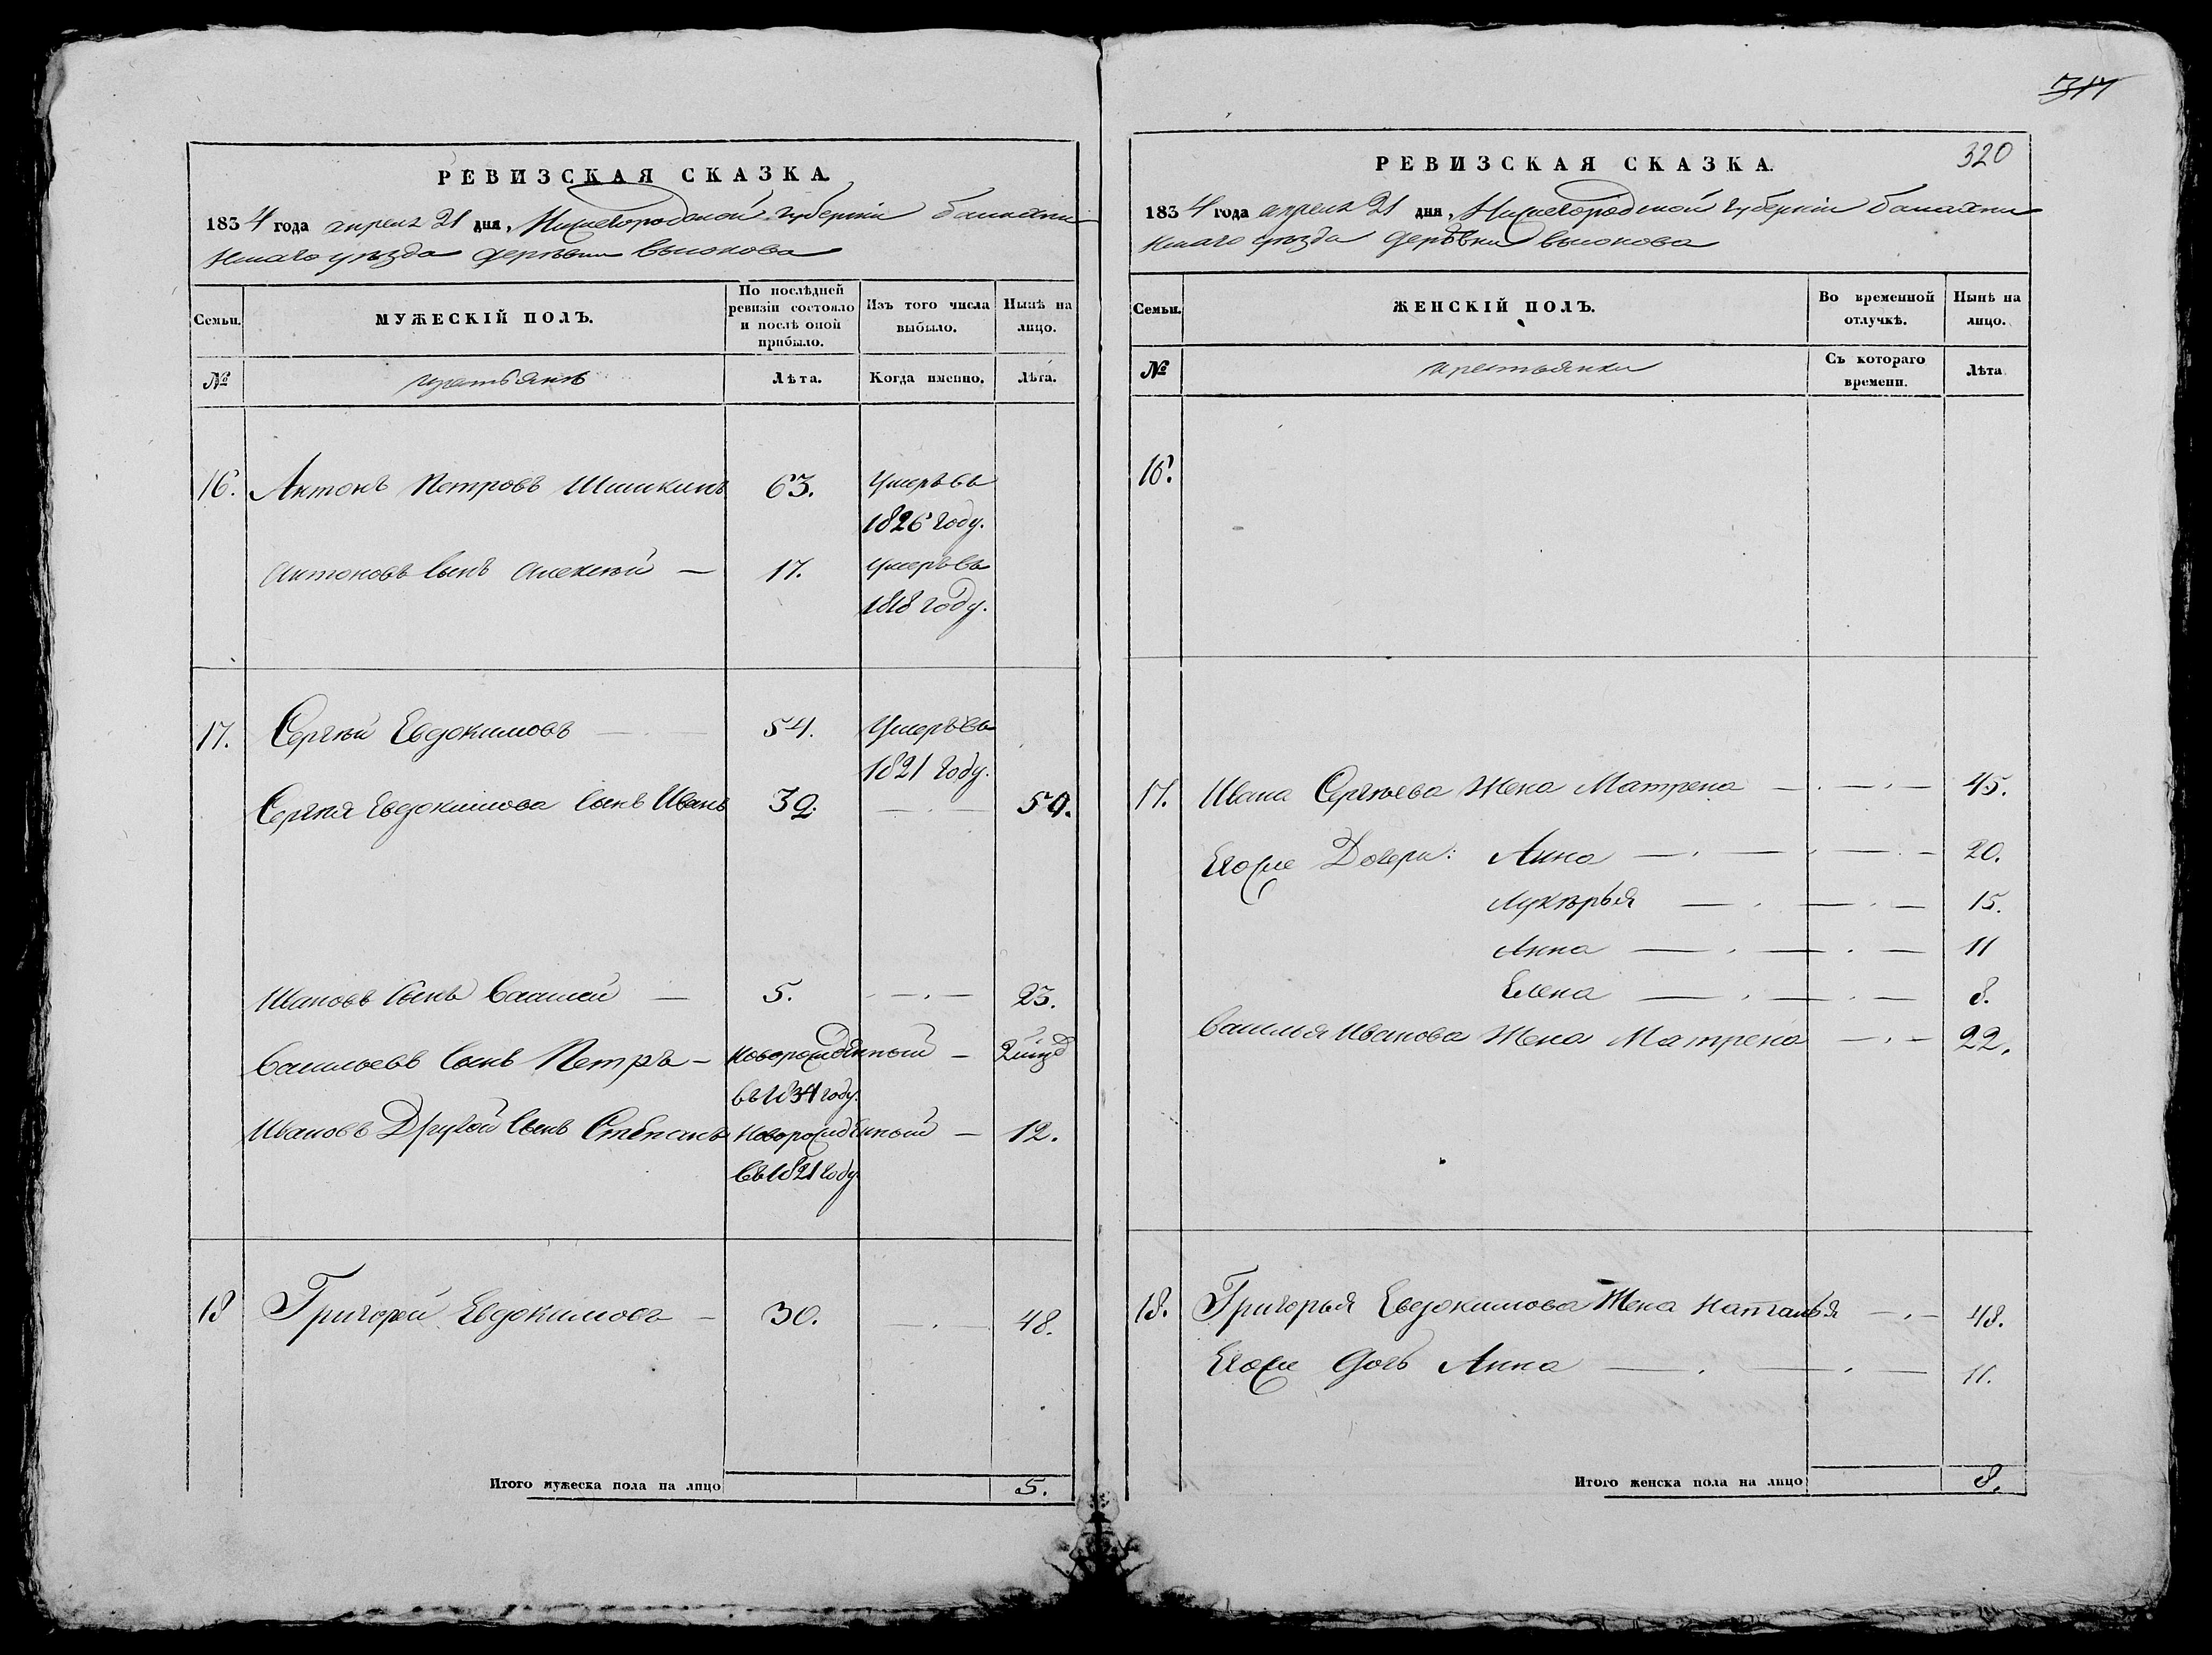 РЕВИЗСКАЯ СКАЗКА.
1834 года апреля 21 дня, Нижегородской губернии балахни
нскаго уѣзда деревни высокова
Семьи.
МУЖЕСКІЙ ПОЛЪ.
По послѣдней ревизіи состояло и послѣ оной прибыло.
Изъ того числа выбыло.
Нынѣ на лицо.
№
крестьянѣ
Лѣта.
Когда именно.
Лѣта.
16. Антонъ Петровъ Шишкинъ 63. Умеръ въ
1826 году.
Антоновъ сынъ Алексѣй — 17. Умеръ въ
1818 году.
17. Сергѣй Евдокимовъ — 54. Умеръ въ
1821 году.
Сергѣя Евдокимова сынъ Иванъ 32. — 50.
Ивановъ сынъ Василей — 5. — 23.
Васильевъ сынъ Петръ — Новорожденный —
въ 1834 году.
Ивановъ Другой сынъ Степанъ Новорожденный — 12.
въ 1821 году
18 Григорей Евдокимовъ — 30. — 48.
Итого мужеска пола на лицо 5.
317
320
РЕВИЗСКАЯ СКАЗКА.
1834 года апреля 21 дня, Нижегородской губернии балахни
нскаго уѣзда деревни высокова
Семьи.
ЖЕНСКІЙ ПОЛЪ.
Во временной отлучкѣ.
Нынѣ на лицо.
№
крестьянки
Съ котораго времени.
Лѣта
16.
17. Ивана Сергѣева Жена Матрена — 45.
Егоже Дочери: Анна — 20.
Лукѣрья — 15.
Анна — 11
Елена — 8.
Василья Иванова Жена Матрена — 22.
18. Григорья Евдокимова Жена Наталья — 48.
Егоже дочь Анна — 11.
Итого женска пола на лицо 8.